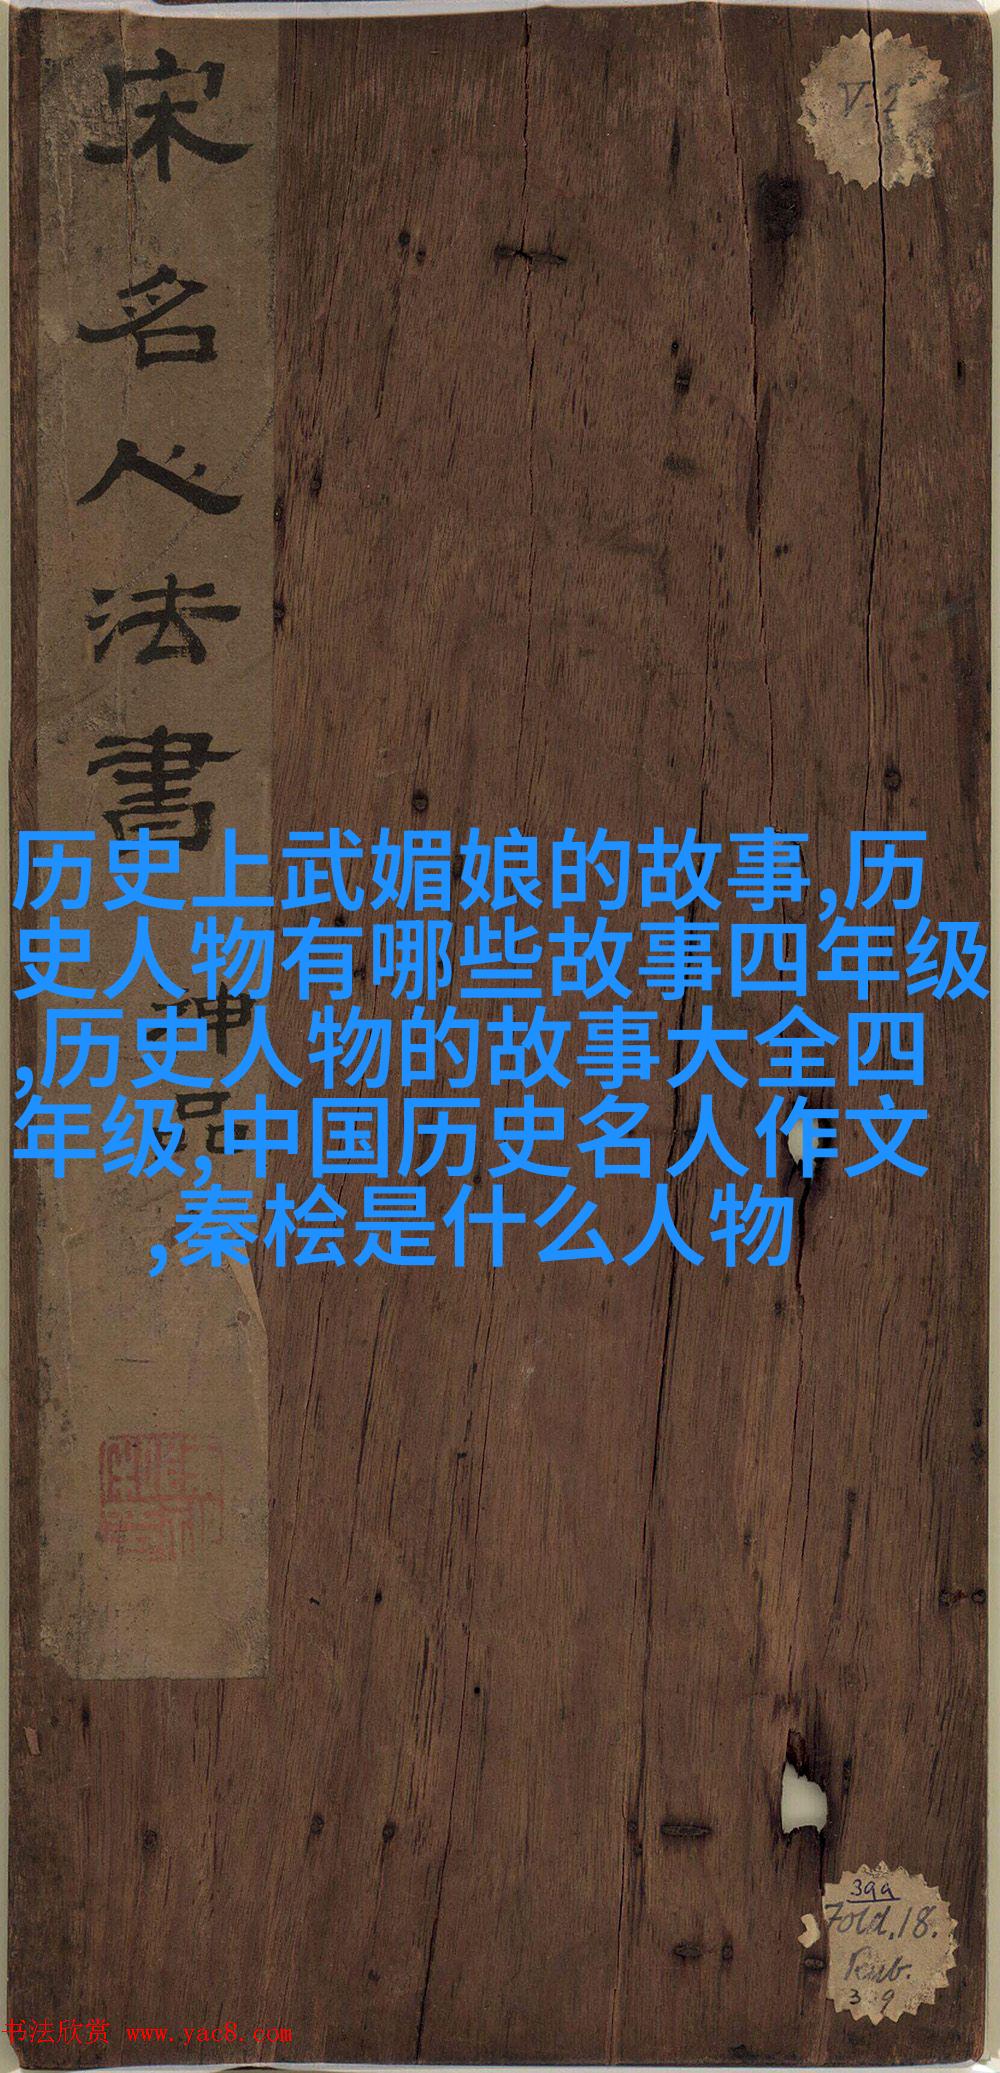 宋名人法書
神品
V-2
历史上武媚娘的故事,历
史人物有哪些故事四年级
,历史人物的故事大全四
年级,中国历史名人作文
,秦桧是什么人物
399
Fold.18.
书法欣赏 www.yac8.com